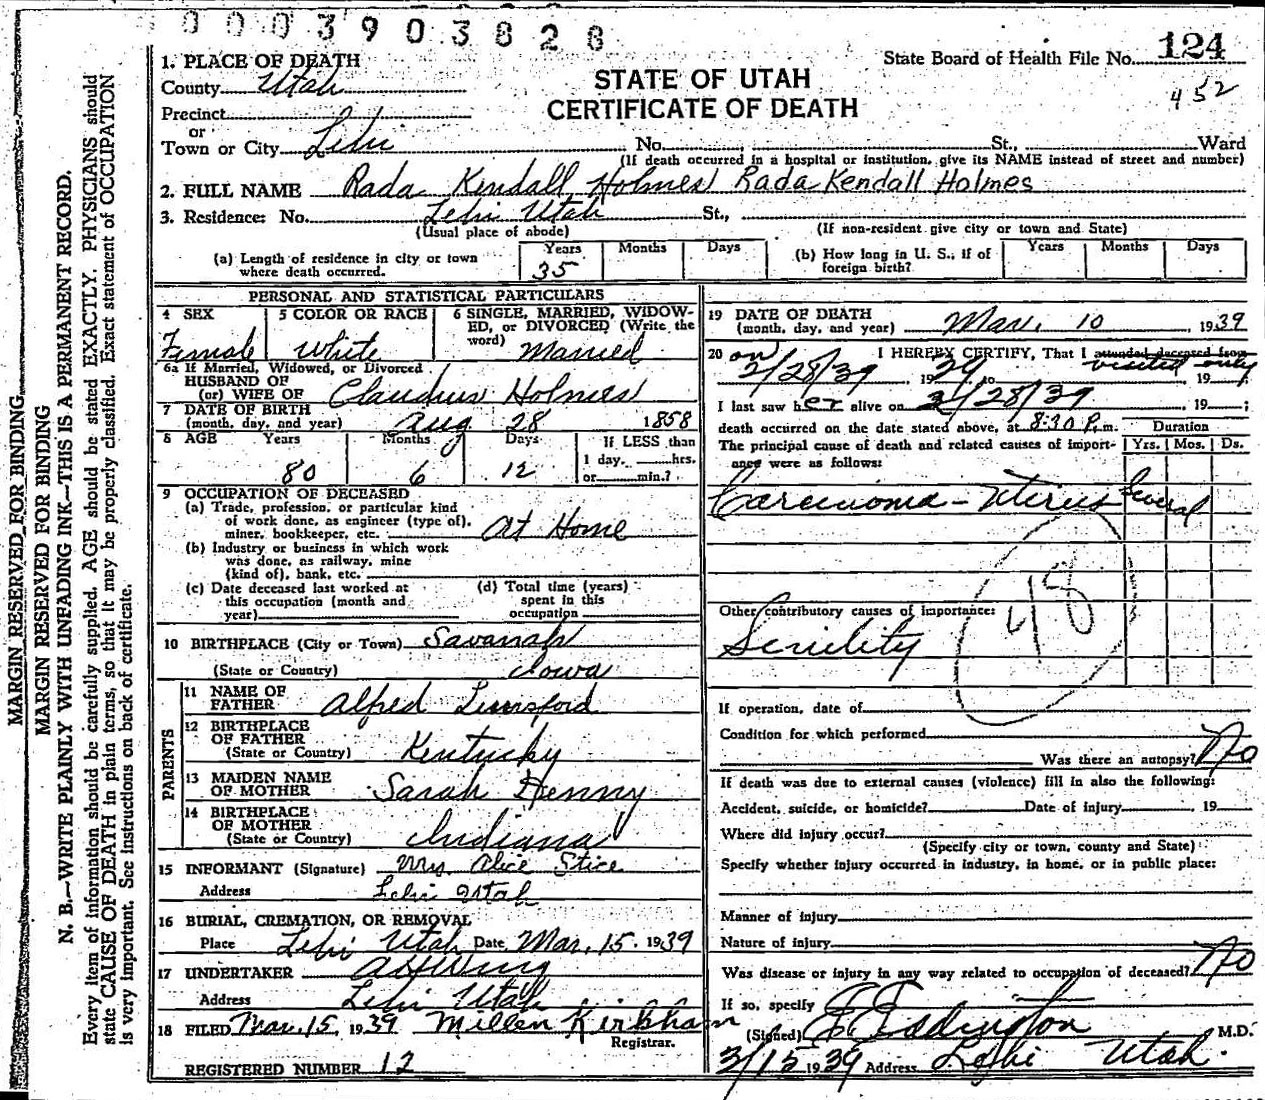 0003903828
State Board of Health File No. 124
452
STATE OF UTAH
CERTIFICATE OF DEATH
1. PLACE OF DEATH
County Utah
Precinct
or
Town or City Lehi No. St., Ward
(If death occurred in a hospital or institution, give its NAME instead of street and number)
2. FULL NAME Rada Kendall Holmes Rada Kendall Holmes
3. Residence: No. Lehi Utah St.,
(Usual place of abode) (If non-resident give city or town and State)
(a) Length of residence in city or town where death occurred. Years 35 Months Days
(b) How long in U. S., if of foreign birth? Years Months Days
PERSONAL AND STATISTICAL PARTICULARS
4 SEX Female
5 COLOR OR RACE White
6 SINGLE, MARRIED, WIDOWED, or DIVORCED (Write the word) Married
6a If Married, Widowed, or Divorced
HUSBAND OF
(or) WIFE OF Claudius Holmes
7 DATE OF BIRTH
(month, day, and year) Aug 28 1858
8 AGE Years 80 Months 6 Days 12 If LESS than
1 day, hrs.
or min.?
9 OCCUPATION OF DECEASED
(a) Trade, profession, or particular kind
of work done, as engineer (type of),
miner, bookkeeper, etc. At Home
(b) Industry or business in which work
was done, as railway, mine
(kind of), bank, etc.
(c) Date deceased last worked at
this occupation (month and
year)
(d) Total time (years)
spent in this
occupation
10 BIRTHPLACE (City or Town) Savanah
(State or Country) Iowa
PARENTS
11 NAME OF
FATHER Alfred Lunsford
12 BIRTHPLACE
OF FATHER
(State or Country) Kentucky
13 MAIDEN NAME
OF MOTHER Sarah Henny
14 BIRTHPLACE
OF MOTHER
(State or Country) Indiana
15 INFORMANT (Signature) Mrs Alice Stice
Address Lehi Utah
16 BURIAL, CREMATION, OR REMOVAL
Place Lehi Utah Date Mar. 15. 1939
17 UNDERTAKER
Address Lehi Utah
18 FILED Mar. 15, 1939 Millen Kirkham
Registrar.
REGISTERED NUMBER 12
19 DATE OF DEATH
(month, day, and year) Mar. 10, 1939
20 on I HEREBY CERTIFY, That I attended deceased from
visited only
2/28/39 19 to , 19 ,
I last saw her alive on 2/28/39, 19 ;
death occurred on the date stated above, at 8:30 P.m.
Duration
The principal cause of death and related causes of importance were as follows:
Yrs. Mos. Ds.
Carcinoma - Uterus Several
48
Other contributory causes of importance:
Senility
If operation, date of
Condition for which performed
Was there an autopsy? No
If death was due to external causes (violence) fill in also the following:
Accident, suicide, or homicide? Date of injury , 19
Where did injury occur?
(Specify city or town, county and State)
Specify whether injury occurred in industry, in home, or in public place:
Manner of injury
Nature of injury
Was disease or injury in any way related to occupation of deceased? No
If so, specify
(Signed) E Eddington M.D.
3/15 1939 Address Lehi Utah.
MARGIN RESERVED FOR BINDING
MARGIN RESERVED FOR BINDING
N. B.—WRITE PLAINLY WITH UNFADING INK—THIS IS A PERMANENT RECORD.
Every item of information should be carefully supplied. AGE should be stated EXACTLY. PHYSICIANS should
state CAUSE OF DEATH in plain terms, so that it may be properly classified. Exact statement of OCCUPATION
is very important. See instructions on back of certificate.